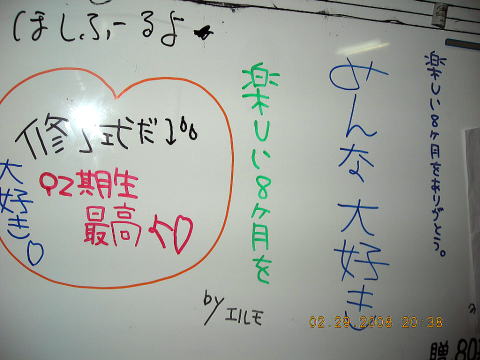 ほしふーるよ
修了式だね
92期生
最高
大好き。
楽しい8ヶ月を
by エルモ
みんな大好き
楽しい8ヶ月をありがとう。
02.28.2008 20:38
贈 803